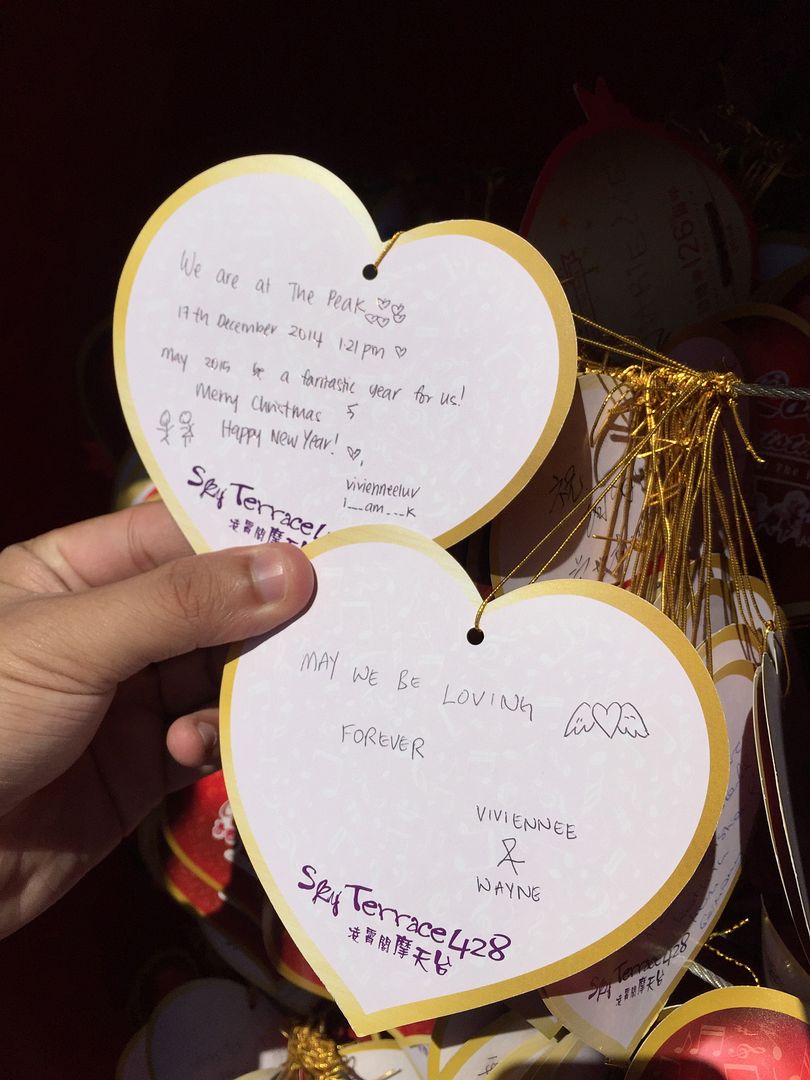 We are at The Peak
17th December 2014 1:21pm
may 2015 be a fantastic year for us!
Merry Christmas &
Happy New Year!
vivienneeluv
i__am___k
Sky Terrace 4
凌霄閣摩天
MAY WE BE LOVING
FOREVER
VIVIENNEE
&
WAYNE
Sky Terrace 428
凌霄閣摩天台
祝
126
Sky Terrace 428
凌霄閣摩天台